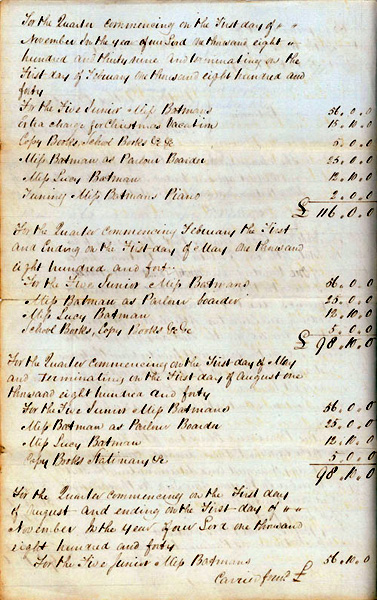 For the Quarter commencing on the First day of
November In the year of our Lord One thousand eight
hundred and thirty nine and terminating on the
First day of February One thousand eight hundred and
forty
For the Five Junior Miss Batmans 56.0.0
Extra charge for Christmas Vacation 15.10.0
Copy Books, School Books &c &c 5.0.0
Miss Batman as Parlour Boarder 25.0.0
Miss Lucy Batman 12.10.0
Tuning Miss Batmans Piano 2.0.0
£ 116.0.0
For the Quarter commencing February the First
and Ending on the First day of May One thousand
eight hundred and forty
For the Five Junior Miss Batmans 56.0.0
Miss Batman as Parlour boarder 25.0.0
Miss Lucy Batman 12.10.0
School Books, Copy Books &c &c 5.0.0
£ 98.10.0
For the Quarter commencing on the First day of May
and terminating on the First day of August one
thousand eight hundred and forty
For the Five Junior Miss Batmans 56.0.0
Miss Batman as Parlour Boarder 25.0.0
Miss Lucy Batman 12.10.0
Copy Books Stationary &c 5.0.0
98.10.0
For the Quarter commencing on the First day
of August and ending on the First day of
November In the Year of our Lord One thousand
eight hundred and forty
For the Five Junior Miss Batmans 56.10.0
Carried forwd £